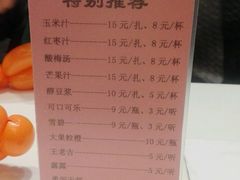 特别推荐
玉米汁——15元/扎、8元/杯
红枣汁——15元/扎、8元/杯
酸梅汤——15元/扎、8元/杯
芒果汁——15元/扎、8元/杯
醇豆浆——5元/扎、8元/杯
可口可乐——9元/瓶、3元/听
雪碧——9元/瓶、3元/听
大果粒橙——10元/瓶
王老吉——5元/听
露露——5元/听